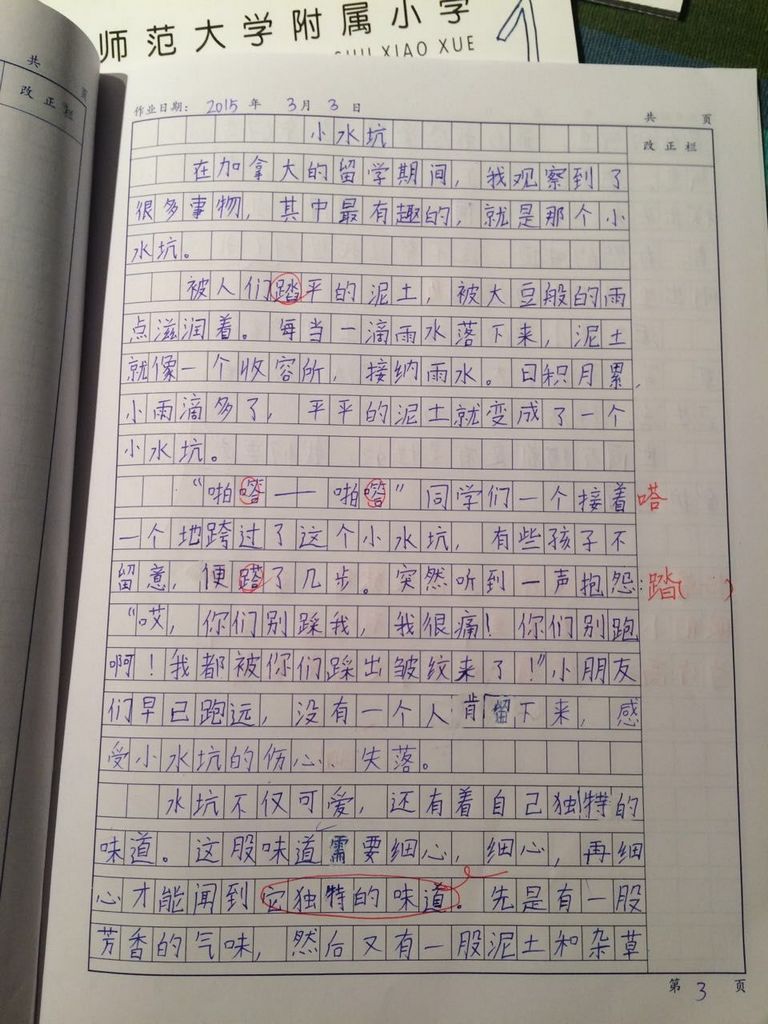 师范大学附属小学
SHU XIAO XUE
共 页
改正栏
作业日期: 2015 年 3月 3 日
共 页
改正栏
小水坑
在加拿大的留学期间，我观察到了
很多事物，其中最有趣的，就是那个小
水坑。
被人们踏平的泥土，被大豆般的雨
点滋润着。每当一滴雨水落下来，泥土
就像一个收容所，接纳雨水。日积月累，
小雨滴多了，平平的泥土就变成了一个
小水坑。
“啪嗒——啪嗒”同学们一个接着
嗒
一个地跨过了这个小水坑，有些孩子不
留意，便踏了几步。突然听到一声抱怨：
踏( )
“哎，你们别踩我，我很痛！你们别跑
啊！我都被你们踩出皱纹来了！”小朋友
们早已跑远，没有一个人肯留下来，感
受小水坑的伤心、失落。
水坑不仅可爱，还有着自己独特的
味道。这股味道需要细心，细心，再细
心才能闻到它独特的味道。先是有一股
芳香的气味，然后又有一股泥土和杂草
第 3 页